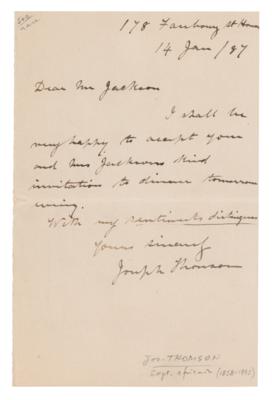 178 Faubourg St Honor
14 Jan /87
Dear Mr Jackson
I shall be
very happy to accept your
and Mrs Jacksons kind
invitation to dinner tomorrow
evening.
With my sentiments distingues
Yours sincerely
Joseph Thomson
Jos. THOMSON
Expl. africain (1858-1895)